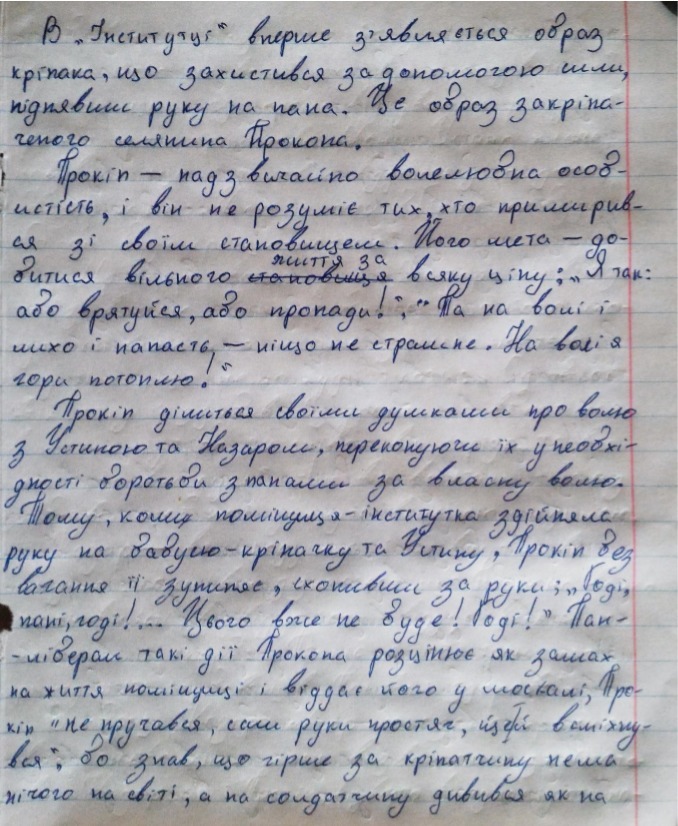 В „Інститутці" вперше з'являється образ
кріпака, що захистився за допомогою сили,
піднявши руку на пана. Це образ закріпа-
ченого селянина Прокопа.
Прокіп — надзвичайно волелюбна особ-
истість, і він не розуміє тих, хто примирив-
ся зі своїм становищем. Його мета — до-
битися вільного становища життя за всяку ціну: „Я так:
або врятуйся, або пропади!", "Та на волі і
лихо і напасть, — ніщо не страшне. На волі я
гори потоплю!"
Прокіп ділиться своїми думками про волю
з Устиною та Назаром, переконуючи їх у необхі-
дності боротьби з панами за власну волю.
Тому, коли поміщиця-інститутка здійняла
руку на бабусю-кріпачку та Устину, Прокіп без
вагання її зупиняє, схопивши за руки: „Годі,
пані, годі!... Цього вже не буде! Годі!" Пан-
-ліберал такі дії Прокопа розцінює як замах
на життя поміщиці і віддає його у москалі, Про-
кіп "не пручався, сам руки простяг, іще й всміхну-
вся", бо знав, що гірше за кріпатчину нема
нічого на світі, а на солдатчину дивився як на